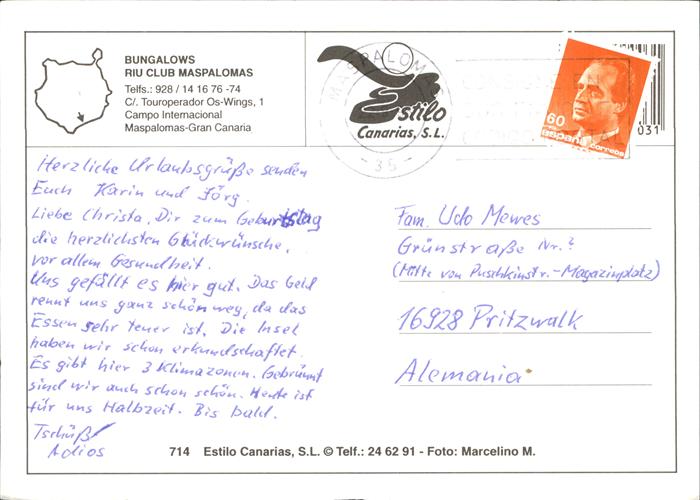 BUNGALOWS
RIU CLUB MASPALOMAS
Telfs.: 928 / 14 16 76 -74
C/. Touroperador Os-Wings, 1
Campo Internacional
Maspalomas-Gran Canaria
MASPALOM
- 35 -
Estilo
Canarias, S.L.
60
España
correos
031
Herzliche Urlaubsgrüße senden
Euch Karin und Jörg.
Liebe Christa, Dir zum Geburtstag
die herzlichsten Glückwünsche,
vor allem Gesundheit.
Uns gefällt es hier gut. Das Geld
rennt uns ganz schön weg, da das
Essen sehr teuer ist. Die Insel
haben wir schon erkundschaftet.
Es gibt hier 3 Klimazonen. Gebräunt
sind wir auch schon schön. Heute ist
für uns Halbzeit. Bis bald.
Tschüß!
Adios
Fam. Udo Mewes
Grünstraße Nr.?
(Mitte von Puschkinstr.-Magazinplatz)
16928 Pritzwalk
Alemania
714 Estilo Canarias, S.L. © Telf.: 24 62 91 - Foto: Marcelino M.